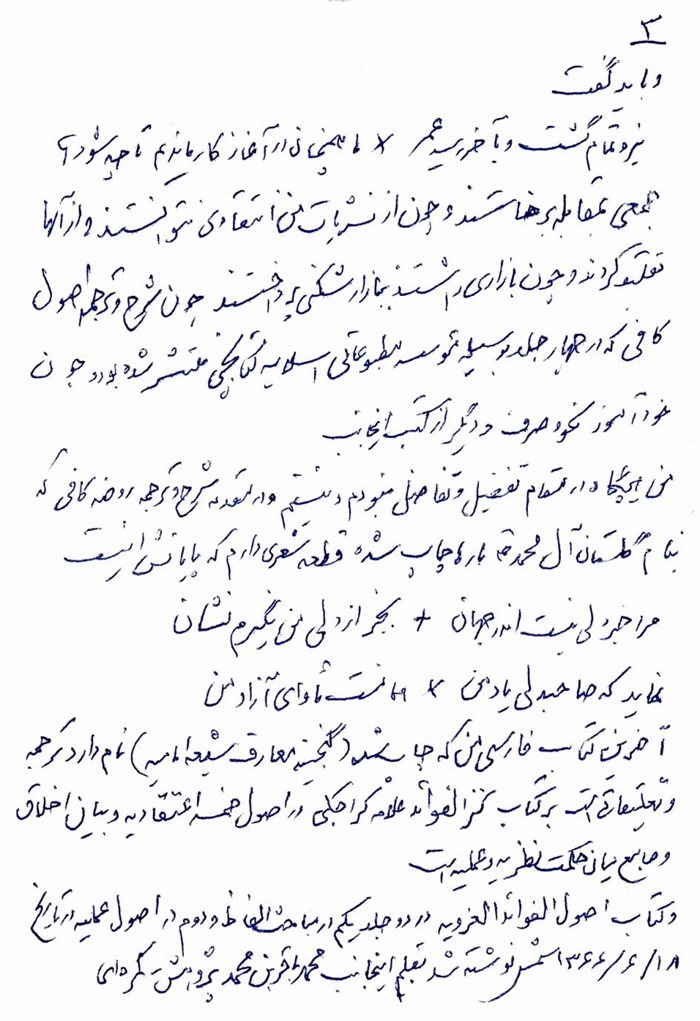 ۳
و باید گفت
نیرو تمام گشت و بآخر رسید عمر × ما همچنان در آغاز کار ماندیم تا چه شود؟
جمعی بمقابله برخاستند و چون از نشریات من انتقادی نتوانستند و از آنها
تقلید کردند و چون بازاری داشتند ببازار شکنی پرداختند چون شرح و ترجمه اصول
کافی که در چهار جلد بوسیله موسسه مطبوعاتی اسلامیه کتابچی منتشر شده بود و چون
خودآموز نحو و صرف و دیگر از کتب اینجانب
من هیچگاه در مقام تفضیل و تفاضل نبودم و نیستم و در مقدمه شرح و ترجمه روضه کافی که
بنام گلستان آل محمد بارها چاپ شده قطعه شعری دارم که پایانش اینست
مرا جز دلی نیست اندر جهان + بجز از دلی من نگیرم نشان
نماید که صاحبدلی یاد من × آزاد من
آخرین کتاب فارسی من که چاپ شده (گنجینه معارف شیعه امامیه) نام دارد ترجمه
و تعلیقاتی است بر کتاب کنز الفوائد علامه کراجکی در اصول خمسه اعتقادیه و بیان اخلاق
و جامع میان حکمت نظریه و عملیه است
و کتاب اصول الفوائد الغرویه در دو جلد یکم در مباحث الفاظ و دوم در اصول عملیه در تاریخ
۱۳۶۶/۶/۱۸ شمسی نوشته شد بقلم اینجانب محمد باقر بن محمد پژوهش کمره‌ای